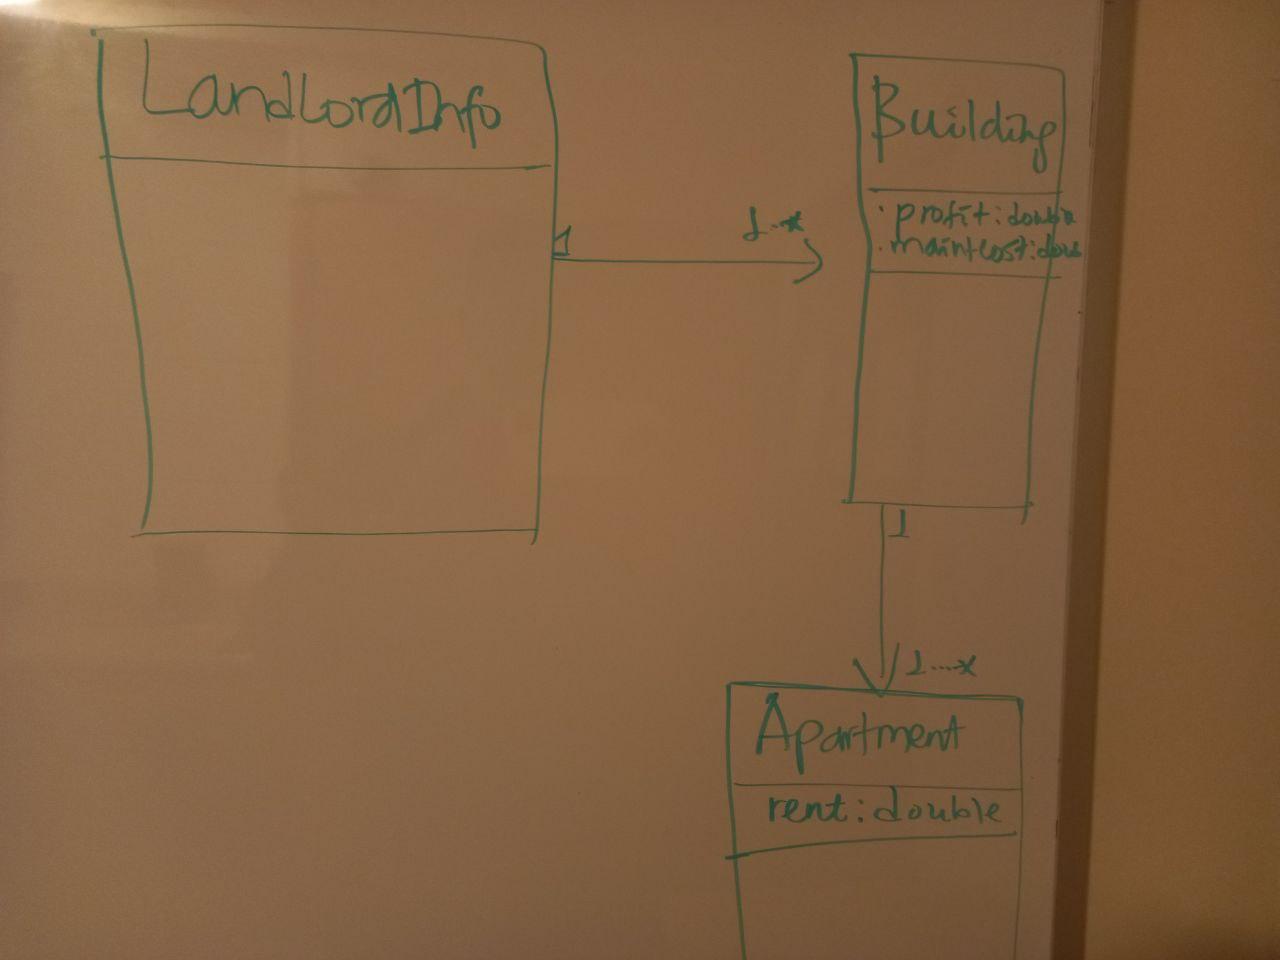 LandLordInfo
1
1..*
Building
. profit: double
. maintcost: doub
1
1....*
Apartment
rent: double